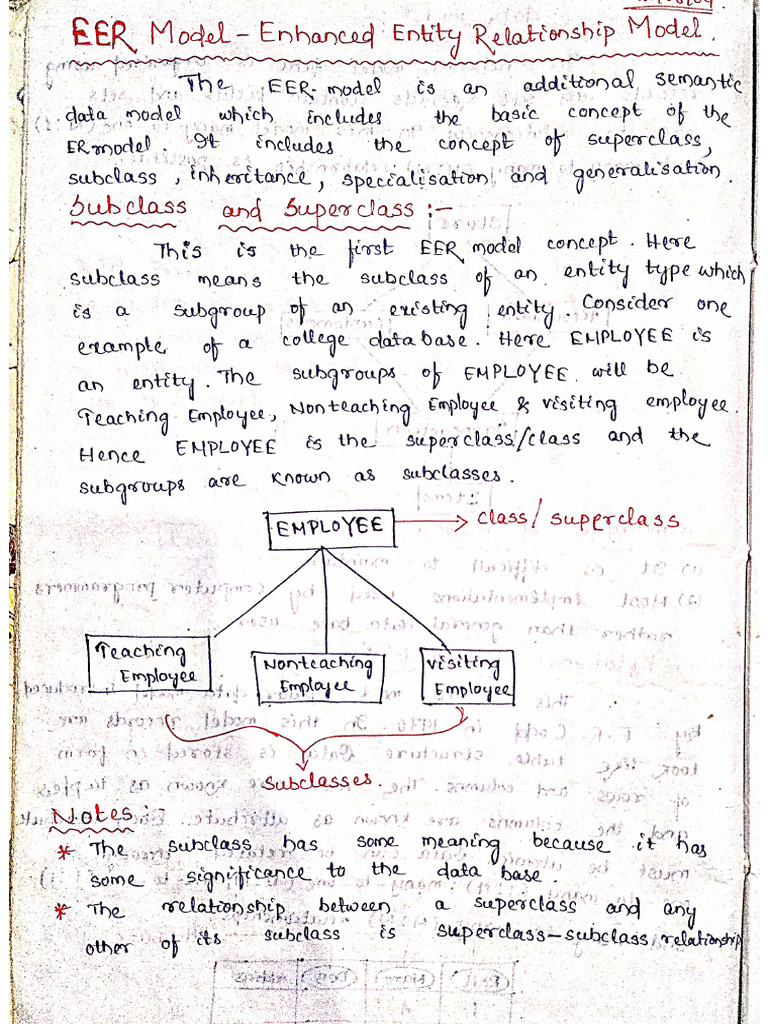 EER Model - Enhanced Entity Relationship Model.
The EER-model is an additional semantic
data model which includes the basic concept of the
ER model. It includes the concept of superclass,
subclass, inheritance, specialisation and generalisation.
Subclass and Superclass :-
This is the first EER model concept. Here
subclass means the subclass of an entity type which
is a subgroup of an existing entity. Consider one
example of a college database. Here EMPLOYEE is
an entity. The subgroups of EMPLOYEE will be
Teaching Employee, Nonteaching Employee & visiting employee.
Hence EMPLOYEE is the superclass/class and the
subgroups are known as subclasses.
EMPLOYEE
class/superclass
Teaching
Employee
Nonteaching
Employee
visiting
Employee
Subclasses.
Notes :-
* The subclass has some meaning because it has
some significance to the data base.
* The relationship between a superclass and any
other of its subclass is superclass-subclass relationship